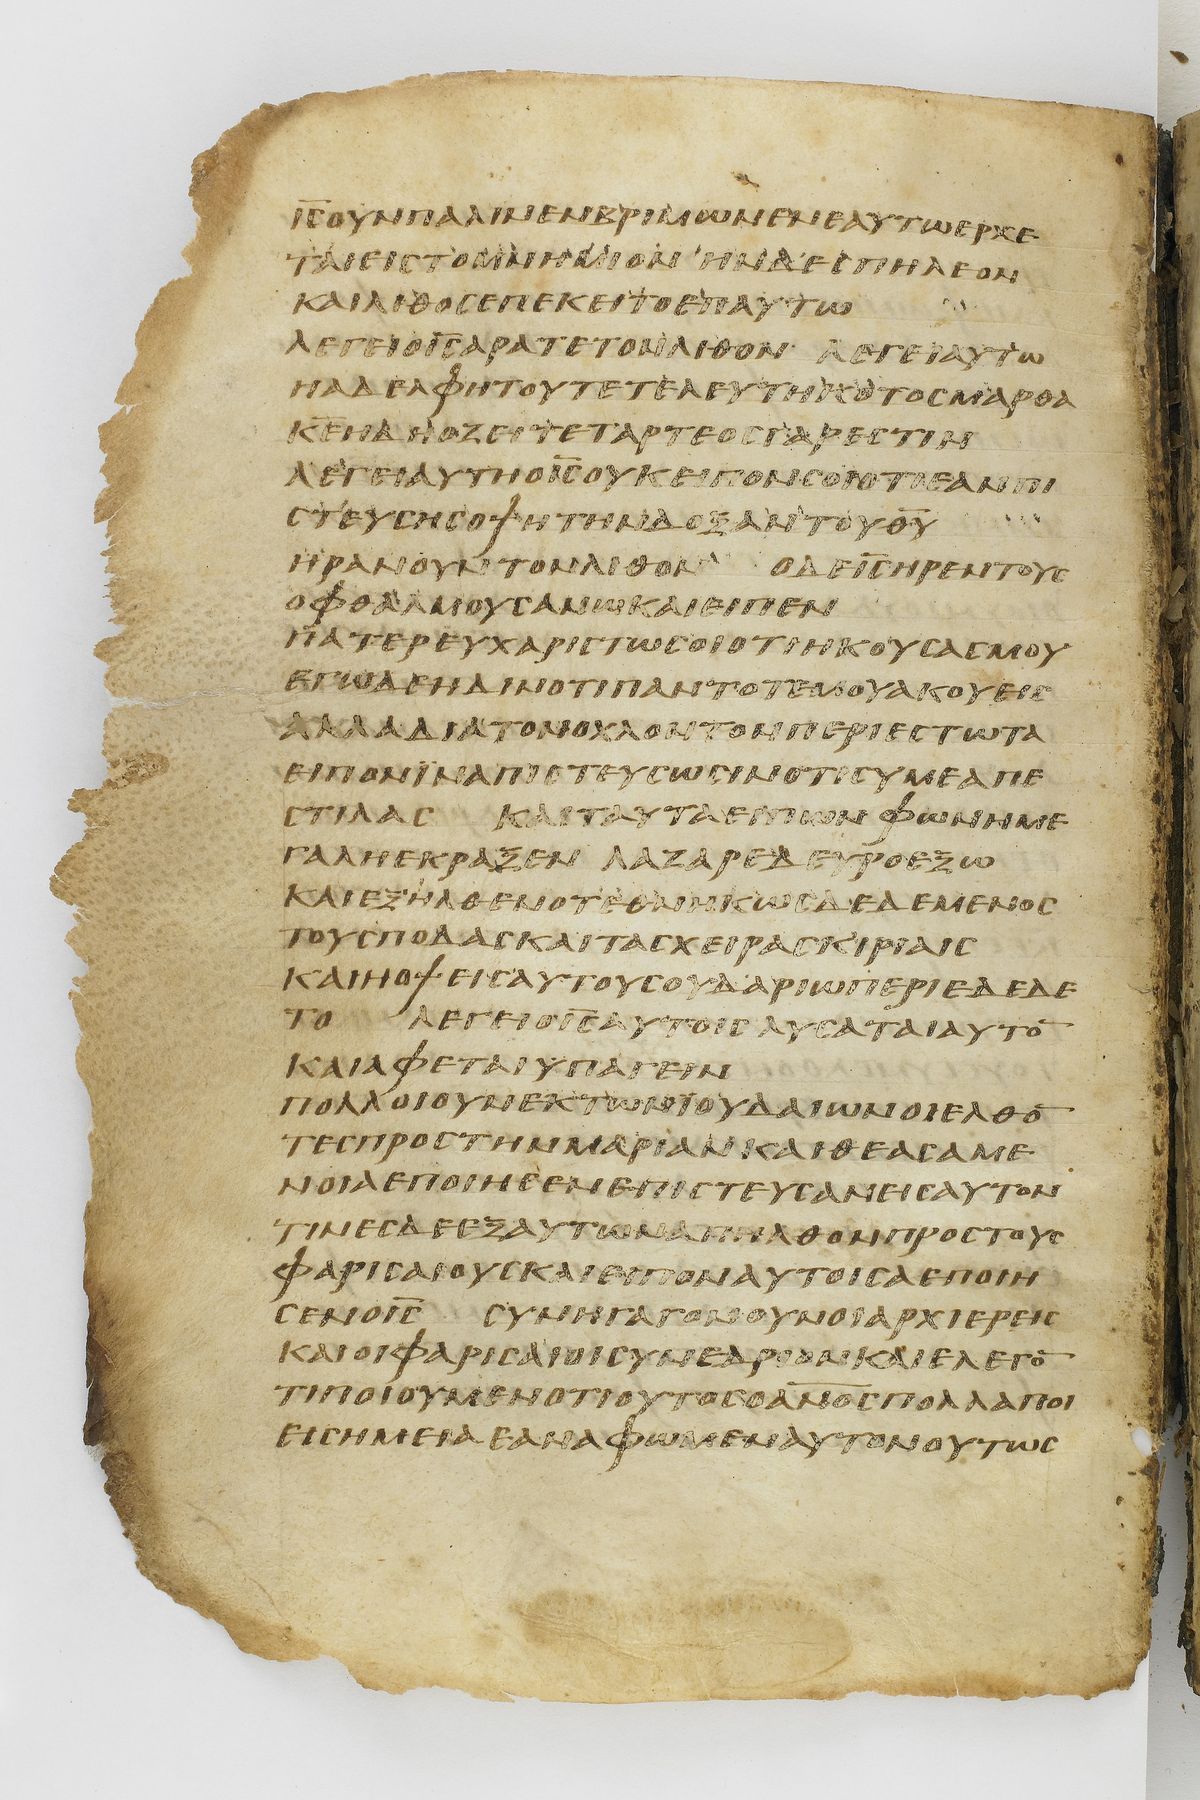 ΙC̅ΟΥΝΠΑΛΙΝΕΝΒΡΙΜΩΜΕΝΕΑΥΤΩΕΡΧΕ
ΤΑΙΕΙCΤΟΜΝΗΜΙΟΝ ΗΝΔΕCΠΗΛΕΟΝ
ΚΑΙΛΙΘΟCΕΠΕΚΕΙΤΟΕΠΑΥΤΩ
ΛΕΓΕΙΟΙC̅ΑΡΑΤΕΤΟΝΛΙΘΟΝ· ΛΕΓΕΙΑΥΤΩ
ΗΑΔΕΛΦΗΤΟΥΤΕΤΕΛΕΥΤΗΚΟΤΟCΜΑΡΘΑ
ΚΕ̅ΗΔΗΟΖΕΙΤΕΤΑΡΤΕΟCΓΑΡΕCΤΙΝ
ΛΕΓΕΙΑΥΤΗΟΙC̅ΟΥΚΕΙΠΟΝCΟΙΟΤΙΕΑΝΠΙ
CΤΕΥCΗCΟΨΗΤΗΝΔΟΞΑΝΤΟΥΘΥ̅
ΗΡΑΝΟΥΝΤΟΝΛΙΘΟΝ ΟΔΕΙC̅ΗΡΕΝΤΟΥC
ΟΦΘΑΛΜΟΥCΑΝΩΚΑΙΕΙΠΕΝ
ΠΑΤΕΡΕΥΧΑΡΙCΤΩCΟΙΟΤΙΗΚΟΥCΑCΜΟΥ
ΕΓΩΔΕΗΔΙΝΟΤΙΠΑΝΤΟΤΕΜΟΥΑΚΟΥΕΙC
ΑΛΛΑΔΙΑΤΟΝΟΧΛΟΝΤΟΝΠΕΡΙΕCΤΩΤΑ
ΕΙΠΟΝΪΝΑΠΙCΤΕΥCΩCΙΝΟΤΙCΥΜΕΑΠΕ
CΤΙΛΑC ΚΑΙΤΑΥΤΑΕΙΠΩΝΦΩΝΗΜΕ
ΓΑΛΗΕΚΡΑΞΕΝ ΛΑΖΑΡΕΔΕΥΡΟΕΞΩ
ΚΑΙΕΞΗΛΘΕΝΟΤΕΘΝΗΚΩCΔΕΔΕΜΕΝΟC
ΤΟΥCΠΟΔΑCΚΑΙΤΑCΧΕΙΡΑCΚΙΡΙΑΙC
ΚΑΙΗΟΨΕΙCΑΥΤΟΥCΟΥΔΑΡΙΩΠΕΡΙΕΔΕΔΕ
ΤΟ ΛΕΓΕΙΟΙC̅ΑΥΤΟΙCΛΥCΑΤΑΙΑΥΤΟ̅
ΚΑΙΑΦΕΤΑΙΥΠΑΓΕΙΝ
ΠΟΛΛΟΙΟΥΝΕΚΤΩΝΪΟΥΔΑΙΩΝΟΙΕΛΘΟ̅
ΤΕCΠΡΟCΤΗΝΜΑΡΙΑΝΚΑΙΘΕΑCΑΜΕ
ΝΟΙΑΕΠΟΙΗCΕΝΕΠΙCΤΕΥCΑΝΕΙCΑΥΤΟΝ
ΤΙΝΕCΔΕΕΞΑΥΤΩΝΑΠΗΛΘΟΝΠΡΟCΤΟΥC
ΦΑΡΙCΑΙΟΥCΚΑΙΕΙΠΟΝΑΥΤΟΙCΑΕΠΟΙΗ
CΕΝΟΙC̅ CΥΝΗΓΑΓΟΝΟΥΝΟΙΑΡΧΙΕΡΕΙC
ΚΑΙΟΙΦΑΡΙCΑΙΟΙCΥΝΕΔΡΙΟΝΚΑΙΕΛΕΓΟ̅
ΤΙΠΟΙΟΥΜΕΝΟΤΙΟΥΤΟCΟΑΝΟ̅CΠΟΛΛΑΠΟΙ
ΕΙCΗΜΕΙΑΕΑΝΑΦΩΜΕΝΑΥΤΟΝΟΥΤΩC